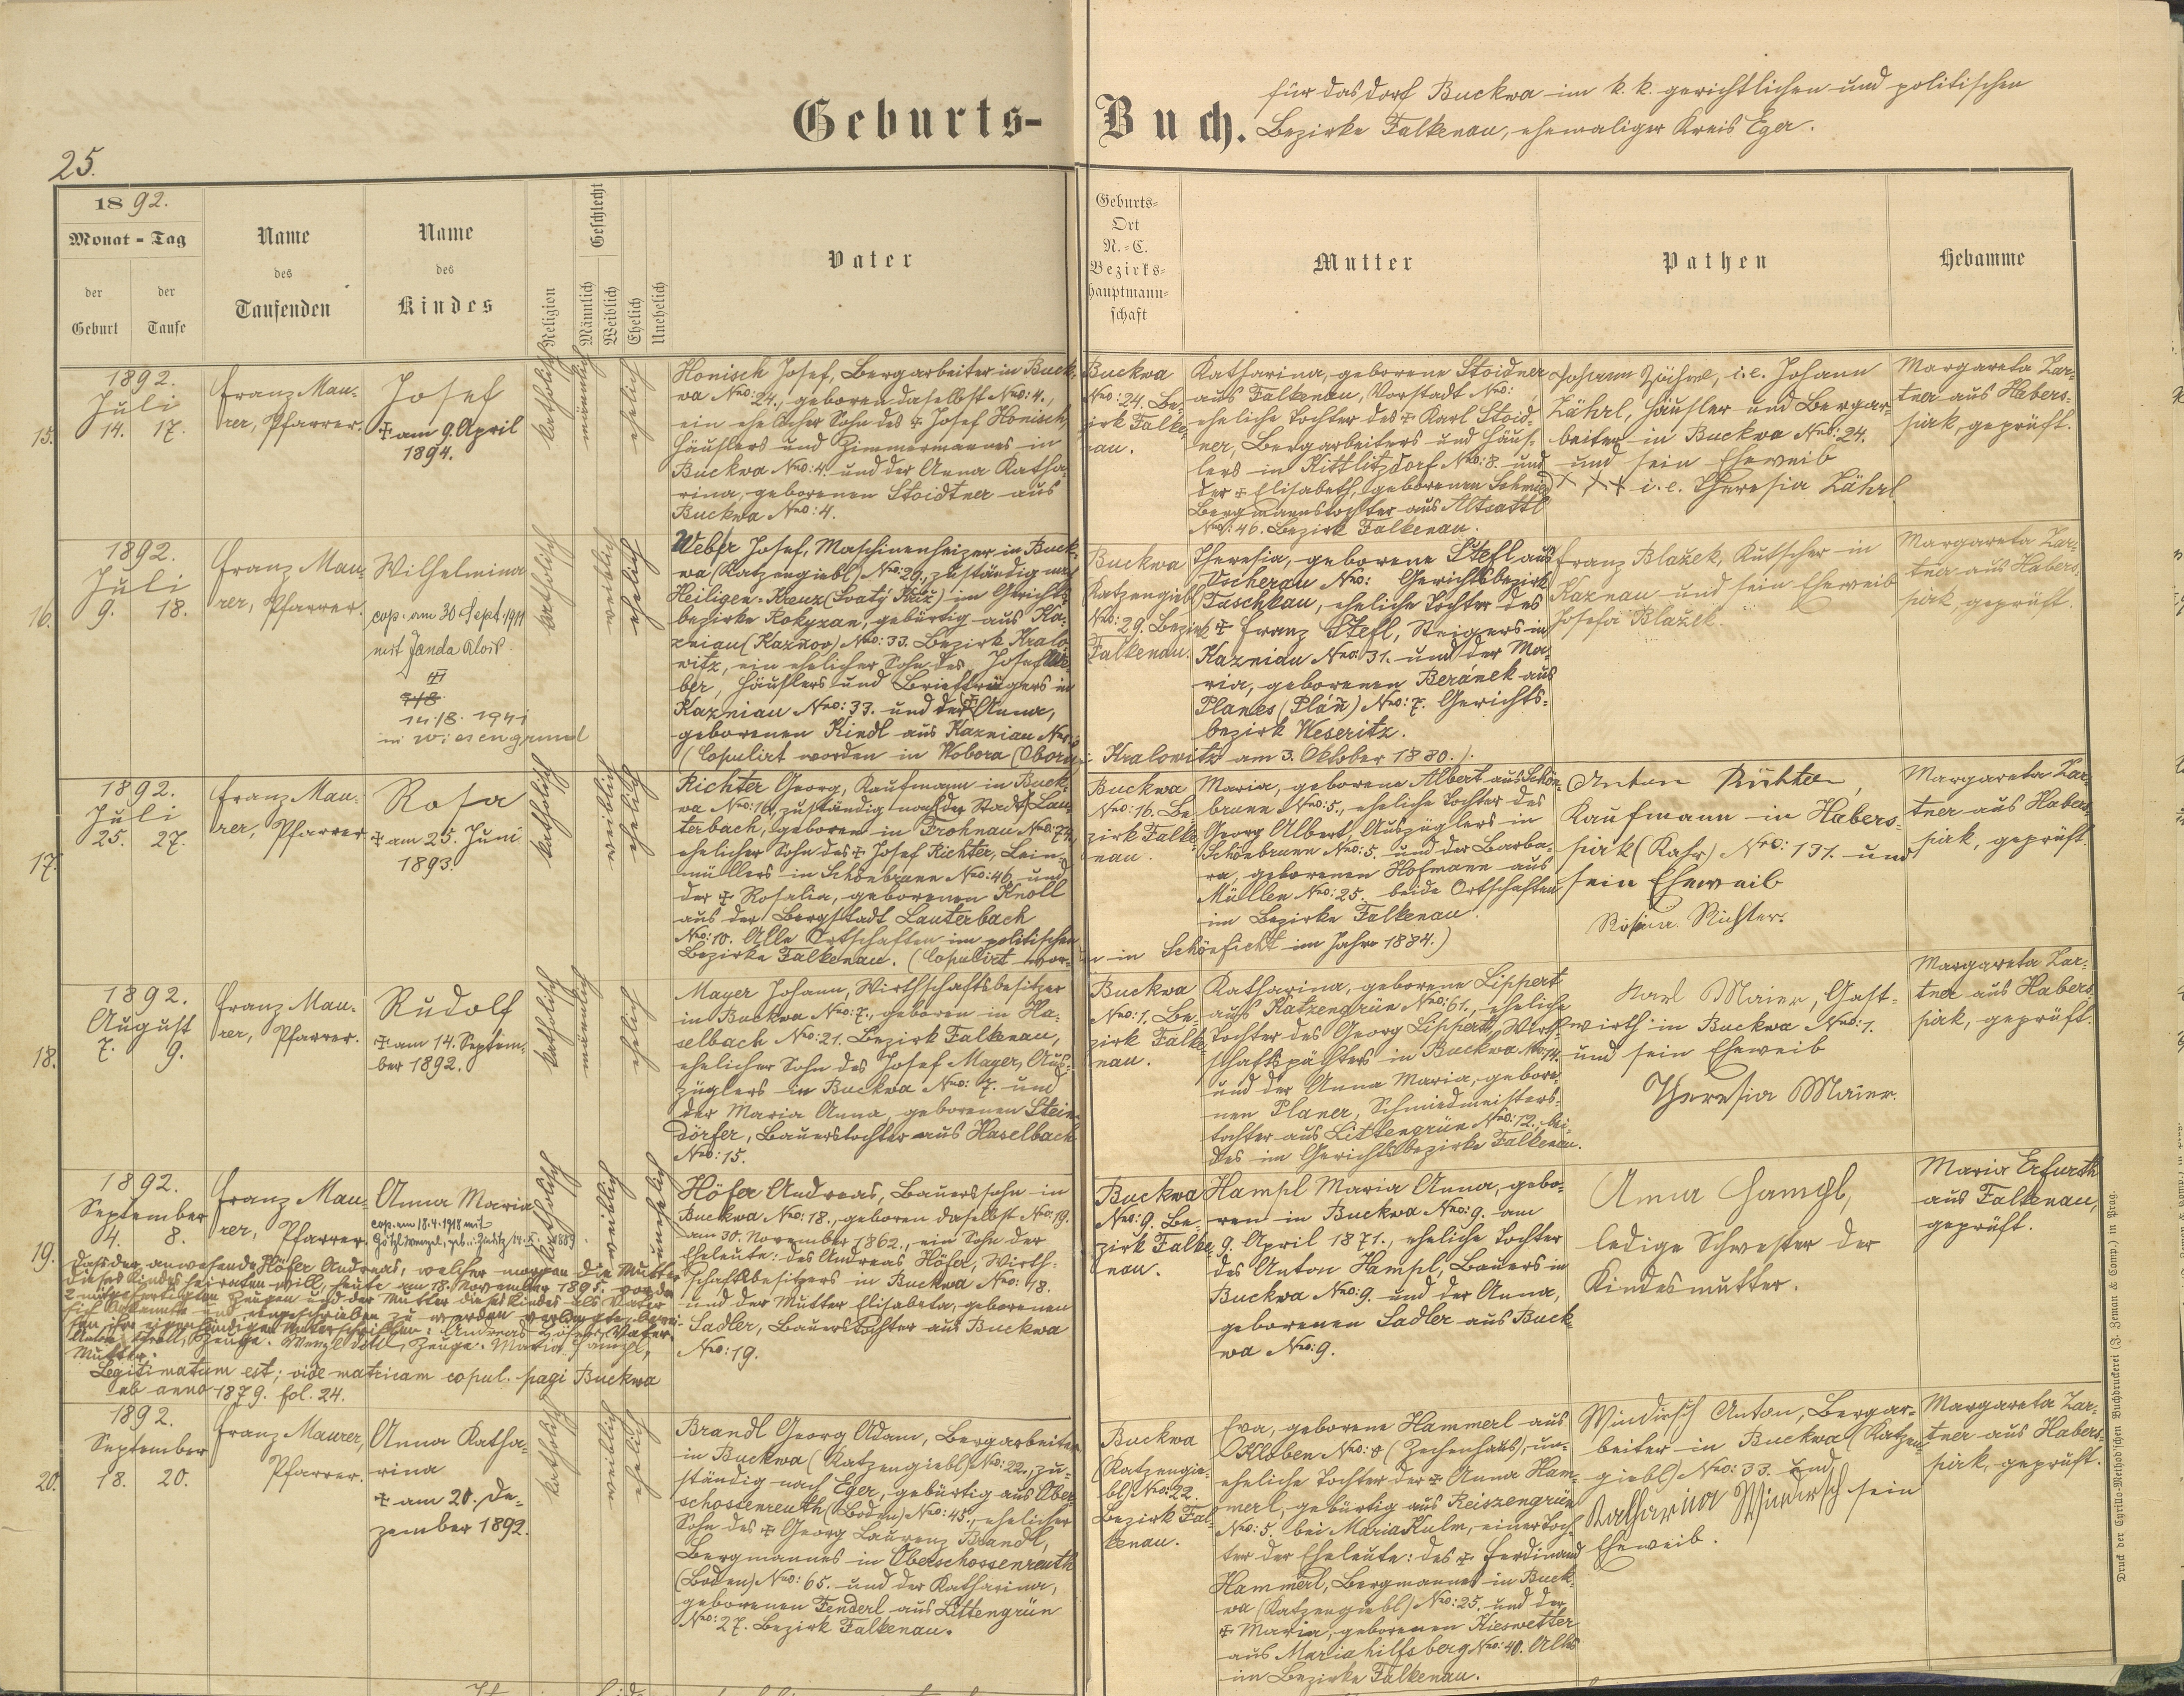 Geburts-Buch.
für das Dorf Buckwa im k. k. gerichtlichen und politischen
Bezirke Falkenau, ehemaliger Kreis Eger.
25.
1892.
Monat - Tag
der Geburt
der Taufe
Name
des
Taufenden
Name
des
Kindes
Religion
Geschlecht
Männlich
Weiblich
Ehelich
Unehelich
Vater
Geburts-
Ort
N.-C.
Bezirks-
hauptmann-
schaft
Mutter
Pathen
Hebamme
15.
1892.
Juli
14. 17.
Franz Mau-
rer, Pfarrer.
Josef
✝ am 9. April
1894.
katholisch
männlich
ehelich
Honisch Josef, Bergarbeiter in Buck-
wa Nro: 24., geboren daselbst Nro: 4.,
ein ehelicher Sohn des ✝ Josef Honisch,
Häuslers und Zimmermannes in
Buckwa Nro: 4. und der Anna Katha-
rina, geborenen Stoidtner aus
Buckwa Nro: 4.
Buckwa
Nro: 24. Be-
zirk Falke-
nau.
Katharina, geborene Stoidner
aus Falkenau, Vorstadt Nro:
eheliche Tochter des ✝ Karl Stoid-
ner, Bergarbeiters und Häus-
lers in Kittlitzdorf Nro: 8. und
der ✝ Elisabeth, geborenen Schmied
Bergmannstochter aus Altsattl
Nro: 46. Bezirk Falkenau.
Johann Zährl, i. e. Johann
Zährl, Häusler und Bergar-
beiter in Buckwa Nro: 24.
und sein Eheweib
✝ ✝ ✝ i. e. Theresia Zährl
Margareta Zar-
tner aus Habers-
pirk, geprüft.
16.
1892.
Juli
9. 18.
Franz Mau-
rer, Pfarrer.
Wilhelmina
cop. am 30 Sept. 1911
mit Janda Alois.
14./8. 1941
in Wiesengrund
katholisch
weiblich
ehelich
Weber Josef, Maschinenheizer in Buck-
wa (Katzengiebl) Nro: 29., zuständig nach
Heiligen-Kreuz (Svatý Kříž) im Gerichts-
bezirke Rokyzan, gebürtig aus Ka-
zniau (Kaznov) Nro: 33. Bezirk Kralo-
witz, ein ehelicher Sohn des Josef We-
ber, Häuslers und Briefträgers in
Kazniau Nro: 33. und der ✝ Anna,
geborenen Riedl aus Kazniau Nro:
(Copulirt worden in Wobora (Obora)
bei Kralowitz am 3. Oktober 1880.)
Buckwa
Katzengiebl
Nro: 29. Bezirk
Falkenau.
Theresia, geborene Stefl aus
Tscherau Nro: Gerichtsbezirk
Tuschkau, eheliche Tochter des
✝ Franz Stefl, Steigers in
Kazniau Nro: 31. und der Ma-
ria, geborenen Beránek aus
Planes (Pláň) Nro: 7. Gerichts-
bezirk Weseritz.
Franz Blažek, Kutscher in
Kaznau und sein Eheweib
Josefa Blažek.
Margareta Zar-
tner aus Habers-
pirk, geprüft.
17.
1892.
Juli
25. 27.
Franz Mau-
rer, Pfarrer
Rosa
✝ am 25. Juni
1893.
katholisch
weiblich
ehelich
Richter Georg, Kaufmann in Buck-
wa Nro: 16, zuständig nach der Stadt Lau-
terbach, geboren in Frohnau Nro: 74,
ehelicher Sohn des ✝ Josef Richter, Lein-
müllers in Schönbrunn Nro: 46. und
der ✝ Rosalia, geborenen Knoll
aus der Bergstadt Lauterbach
Nro: 10. Alle Ortschaften im politischen
Bezirke Falkenau. (Copulirt wor-
den in Schönficht im Jahre 1884.)
Buckwa
Nro: 16. Be-
zirk Falke-
nau.
Maria, geborene Albert aus Schön-
brunn Nro: 5., eheliche Tochter des
Georg Albert, Auszüglers in
Schönbrunn Nro: 5. und der Barba-
ra, geborenen Hofmann aus
Müllen Nro: 25. beide Ortschaften
im Bezirke Falkenau.
Anton Richter,
Kaufmann in Habers-
pirk (Kahr) Nro: 131. und
sein Eheweib
Rosina Richter.
Margareta Zar-
tner aus Habers-
pirk, geprüft.
18.
1892.
August
7. 9.
Franz Mau-
rer, Pfarrer.
Rudolf
✝ am 14. Septem-
ber 1892.
katholisch
männlich
ehelich
Mayer Johann, Wirthschaftsbesitzer
in Buckwa Nro: 7., geboren in Ha-
selbach Nro: 21. Bezirk Falkenau,
ehelicher Sohn des Josef Mayer, Aus-
züglers in Buckwa Nro: 7. und
der Maria Anna, geborenen Stein-
dörfer, Bauerstochter aus Haselbach
Nro: 15.
Buckwa
Nro: 1. Be-
zirk Falke-
nau.
Katharina, geborene Lippert
aus Katzengrün Nro: 61., eheliche
Tochter des Georg Lippert, Wirth-
schaftspächters in Buckwa Nro: 14.
und der Anna Maria, gebore-
nen Planer, Schmiedmeisters-
tochter aus Littengrün Nro: 12., bei-
des im Gerichtsbezirke Falkenau.
Karl Maier, Gast-
wirth in Buckwa Nro: 1.
und sein Eheweib
Theresia Maier.
Margareta Zar-
tner aus Habers-
pirk, geprüft.
19.
1892.
September
4. 8.
Franz Mau-
rer, Pfarrer.
Anna Maria
cop. am 18.4.1918 mit
katholisch
weiblich
unehelich
Höfer Andreas, Bauerssohn in
Buckwa Nro: 18., geboren daselbst Nro: 19.
am 30. November 1862., ein Sohn der
Eheleute: des Andreas Höfer, Wirth-
schaftsbesitzers in Buckwa Nro: 18.
und der Mutter Elisabeta, geborenen
Sadler, Bauerstochter aus Buckwa
Nro: 19.
Buckwa
Nro: 9. Be-
zirk Falke-
nau.
Hampl Maria Anna, gebo-
ren in Buckwa Nro: 9. am
9. April 1871., eheliche Tochter
des Anton Hampl, Bauers in
Buckwa Nro: 9. und der Anna,
geborenen Sadler aus Buck-
wa Nro: 9.
Anna Hampl,
ledige Schwester der
Kindesmutter.
Maria Erfurth
aus Falkenau,
geprüft.
Daß der anwesende Höfer Andreas, welcher morgen die Mutter
dieses Kindes heiraten will, heute am 18. November 1895. vor den
2 mitgefertigten Zeugen und der Mutter dieses Kindes als Vater
sich bekannte und eingeschrieben zu werden verlangte, bewei-
sen ihre eigenhändigen Unterschriften: Andreas Höfer, Vater.
Zeuge. Wenzl Zeuge. Maria Hampl,
Mutter.
Legitimatum est; vide matricam copul. pagi Buckwa
ab anno 1879. fol. 24.
20.
1892.
September
18. 20.
Franz Maurer,
Pfarrer.
Anna Katha-
rina
✝ am 20. De-
zember 1892.
katholisch
weiblich
ehelich
Brandl Georg Adam, Bergarbeiter
in Buckwa (Katzengiebl) Nro: 22., zu-
ständig nach Eger, gebürtig aus Ober-
schossenreuth (Boden) Nro: 45., ehelicher
Sohn des ✝ Georg Laurenz Brandl,
Bergmannes in Oberschossenreuth
(Boden) Nro: 65. und der Katharina,
geborenen Fenderl aus Littengrün
Nro: 27. Bezirk Falkenau.
Buckwa
(Katzengie-
bl) Nro: 22.
Bezirk Fal-
kenau.
Eva, geborene Hammerl aus
Kloben Nro: 8 (Zechenhaus), un-
eheliche Tochter der ✝ Anna Ham-
merl, gebürtig aus Reiszengrün
Nro: 5. bei Maria Kulm, einer Toch-
ter der Eheleute: des ✝ Ferdinand
Hammerl, Bergmannes in Buck-
wa (Katzengiebl) Nro: 25. und der
✝ Maria, geborenen Kieswetter
aus Mariahilfsberg Nro: 40. Alles
im Bezirke Falkenau.
Windirsch Anton, Bergar-
beiter in Buckwa (Katzen-
giebl) Nro: 33. und
Katharina Windirsch sein
Eheweib.
Margareta Zar-
tner aus Habers-
pirk, geprüft.
Druck der Cyrillo-Method'schen Buchdruckerei (J. Zeman & Comp.) in Prag.